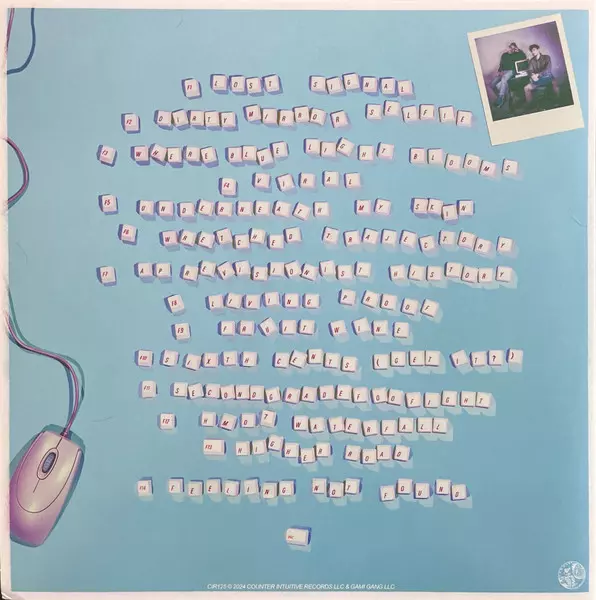 F1 LOST SIGNAL
F2 DIRTY MIRROR SELFIE
F3 WHERE BLUE LIGHT BLOOMS
F4 VIRAL
F5 UNDERNEATH MY SKIN
F6 WRETCHED TRAJECTORY
F7 AP REVISIONIST HISTORY
F8 LIVING PROOF
F9 FRUIT WINE
F10 SIXTH CENTS (GET IT?)
F11 SECONDGRADEFOOFIGHT
F12 HMOT WATERFALL
F13 HIGHER ROAD
F14 FEELING NOT FOUND
ESC
CIR125 © 2024 COUNTER INTUITIVE RECORDS LLC & GAMI GANG LLC